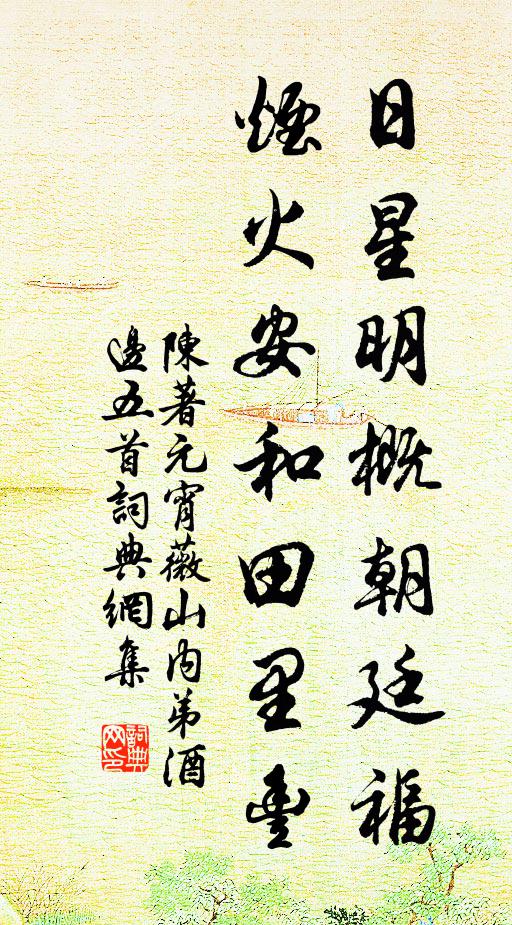 日星明概朝廷福
煙火安和田里豊
陳著元宵薇山内弟酒
邊五首詞典網集
詞典
网印